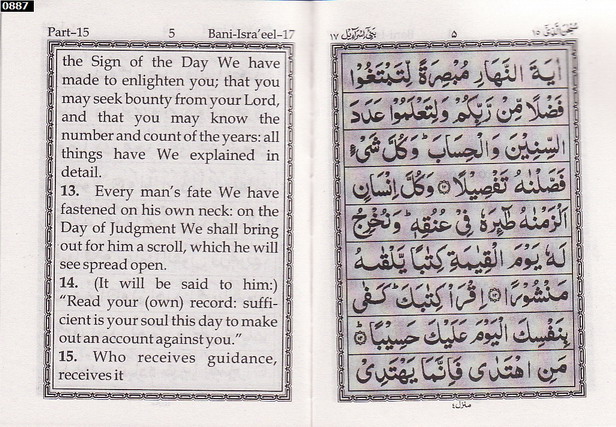 0887
Part-15 5 Bani-Isra'eel-17
the Sign of the Day We have
made to enlighten you; that you
may seek bounty from your Lord,
and that you may know the
number and count of the years: all
things have We explained in
detail.
13. Every man's fate We have
fastened on his own neck: on the
Day of Judgment We shall bring
out for him a scroll, which he will
see spread open.
14. (It will be said to him:)
"Read your (own) record: suffi-
cient is your soul this day to make
out an account against you."
15. Who receives guidance,
receives it
سُبْحٰنَ الَّذِىْ ١٥ ٥ بَنِىْٓ اِسْرَآءِيْل ١٧
اٰيَةَ النَّهَارِ مُبْصِرَةً لِّتَبْتَغُوْا
فَضْلًا مِّنْ رَّبِّكُمْ وَلِتَعْلَمُوْا عَدَدَ
السِّنِيْنَ وَالْحِسَابَ ؕ وَكُلَّ شَىْءٍ
فَصَّلْنٰهُ تَفْصِيْلًا ﴿١٢﴾ وَكُلَّ اِنْسَانٍ
اَلْزَمْنٰهُ طٰٓئِرَهٗ فِىْ عُنُقِهٖ ؕ وَنُخْرِجُ
لَهٗ يَوْمَ الْقِيٰمَةِ كِتٰبًا يَّلْقٰىهُ
مَنْشُوْرًا ﴿١٣﴾ اِقْرَاْ كِتٰبَكَ ؕ كَفٰى
بِنَفْسِكَ الْيَوْمَ عَلَيْكَ حَسِيْبًا ؕ ﴿١٤﴾
مَنِ اهْتَدٰى فَاِنَّمَا يَهْتَدِىْ
منزل ٤